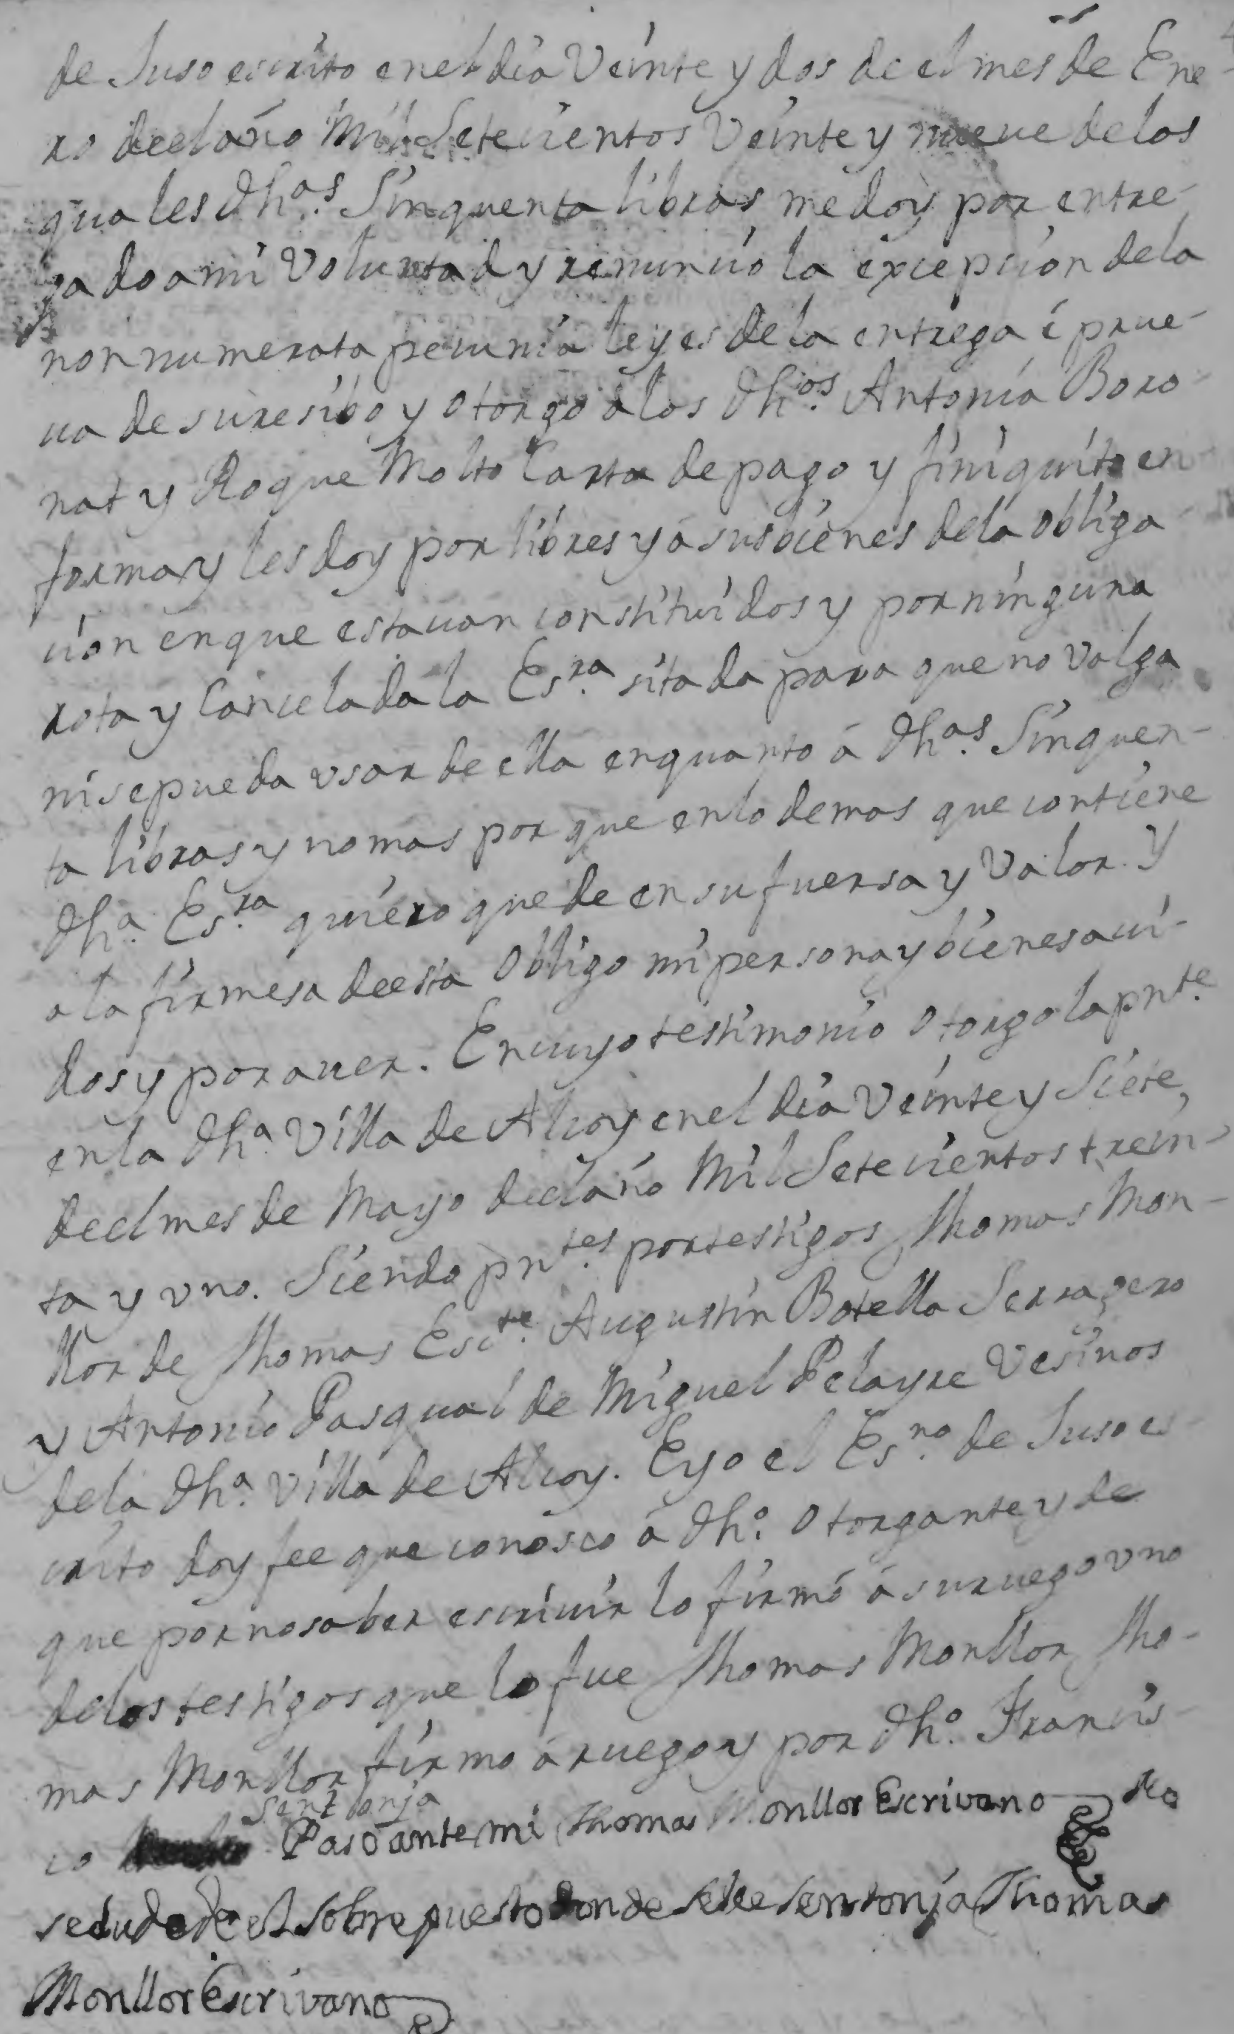 de suso escrito en el dia Veinte y dos de el mes de Ene-
ro de el año Mil Setecientos Veinte y nueve de los
quales dhas. Sinquenta libras me doy por entre-
gado a mi Voluntad y renuncio la excepcion de la
non numerata pecunia leyes de la entrega é prue-
ua de su resibo y otorgo á los dhos. Antonia Boro-
nat y Roque Molto Carta de pago y finiquito en
forma y les doy por libres y á sus bienes de la obliga-
cion en que estavan constituidos y por ninguna
rota y Cancelada la Esra. sitada para que no valga
ni se pueda usar de ella en quanto á dhas. Sinquen-
ta libras y no mas por que en lo demas que contiene
dha. Esra. quiero quede en su fuersa y Valor. Y
a la firmesa de esta Obligo mi persona y bienes avi-
dos y por aver. En cuyo testimonio otorgo la pnte.
en la dha. Villa de Alcoy en el dia Veinte y Siete,
de el mes de Mayo de el año Mil Setecientos trein-
ta y vno. Siendo pntes. por testigos Thomas Mon-
llor de Thomas Escte. Augustin Botella Serragero
y Antonio Pasqual de Miguel Pelayre Vesinos
de la dha. Villa de Alcoy. E yo el Esno. de Suso es-
crito doy fee que conosco á dho. otorgante y de
que por no saber escrivir lo firmó á su ruego vno
de los testigos que lo fue Thomas Monllor Tho-
mas Monllor firmo á ruego y por dho. Francis-
Sentonja
co Paso ante mi Thomas Monllor Escrivano
se dude de el sobre puesto donde se lee Sentonja Thomas
Monllor Escrivano